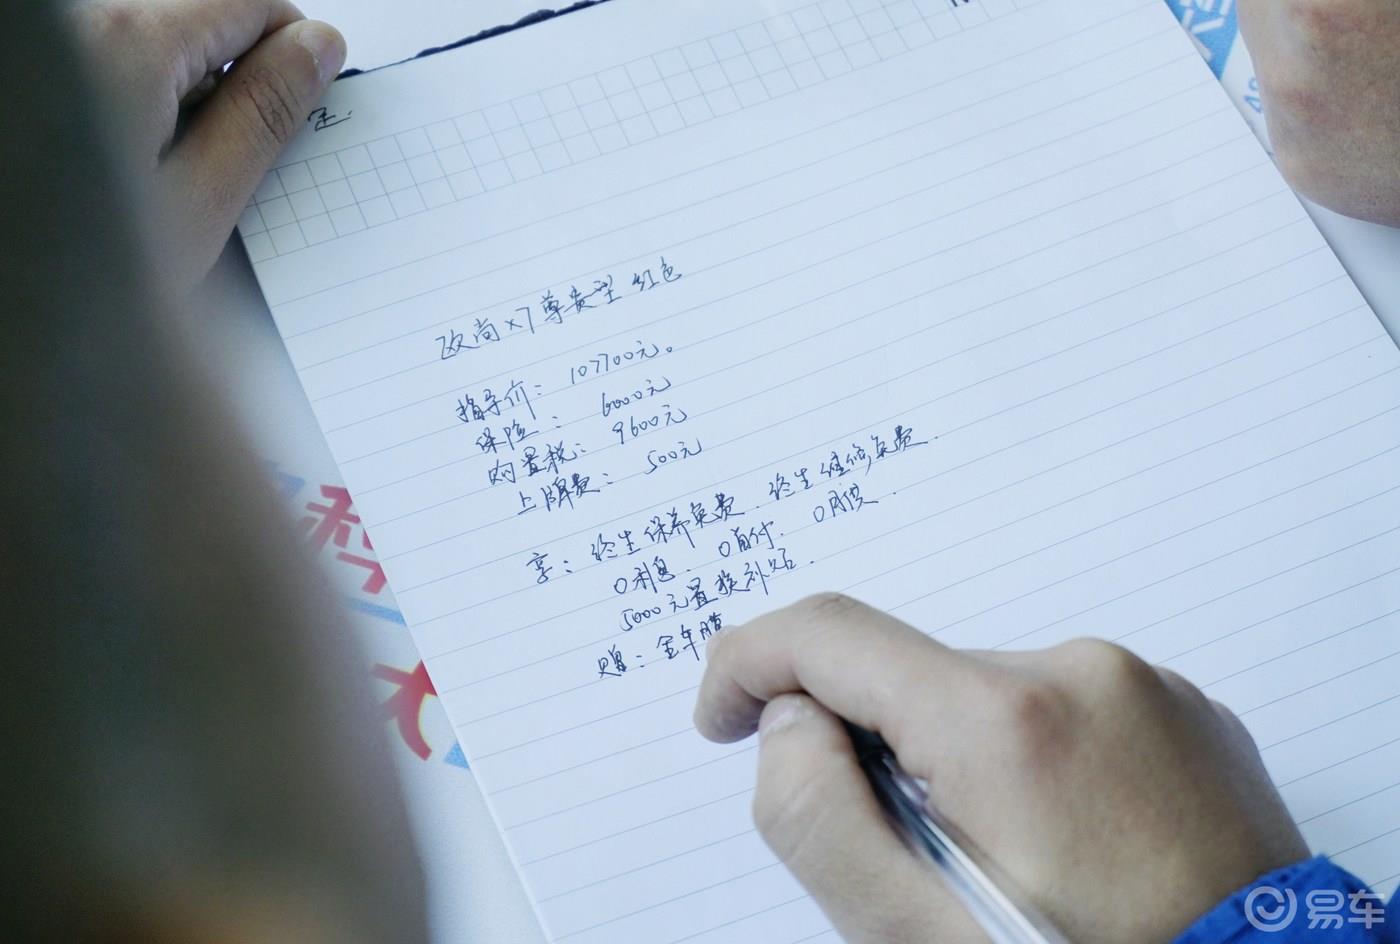 欧尚x7尊贵型 红色
指导价： 107700元。
保险： 6000元
购置税： 9600元
上牌费： 500元
享：终生保养免费．终生维修免费．
0利息．0首付．0月供．
5000元置换补贴．
赠：全车膜
易车